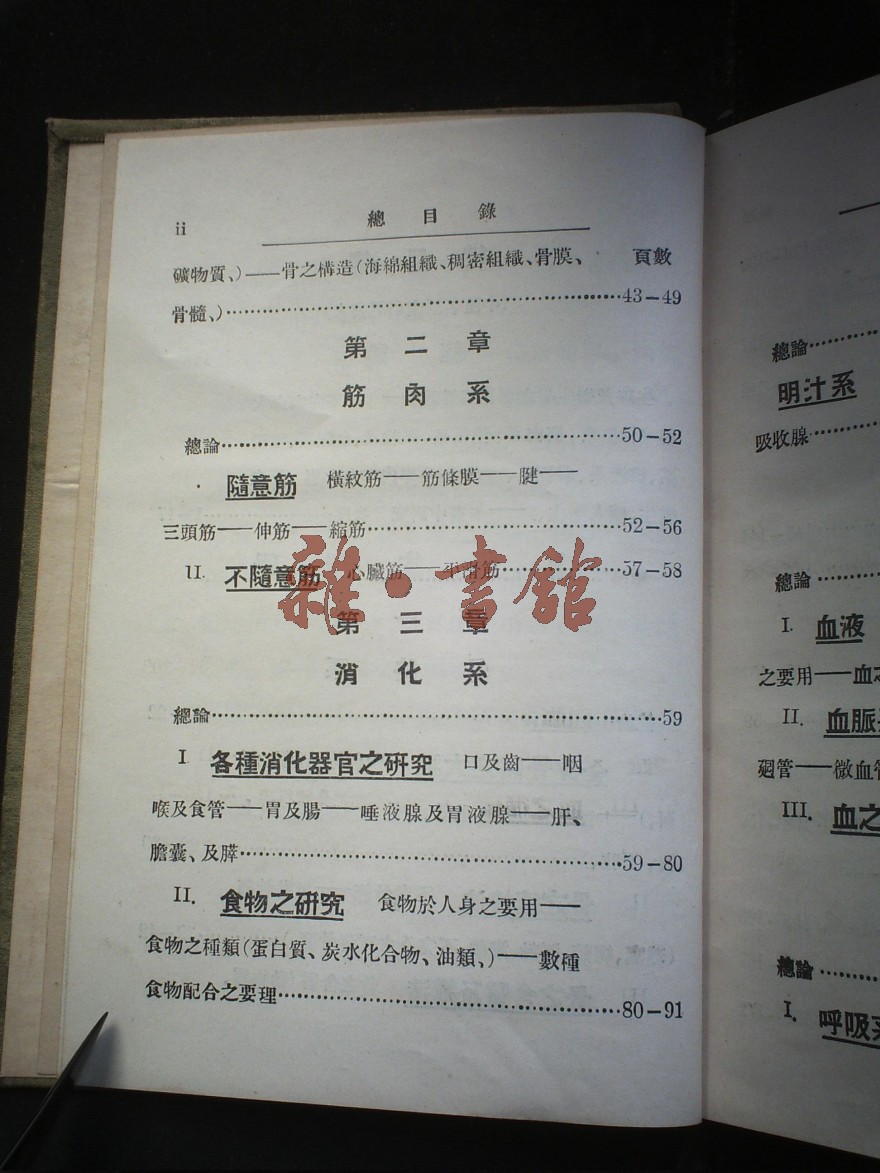 ii 總目錄
礦物質、)——骨之構造(海綿組織、稠密組織、骨膜、 頁數
骨髓、)……43-49
第二章
筋肉系
總論……50-52
隨意筋 橫紋筋——筋條膜——腱——
三頭筋——伸筋——縮筋……52-56
II. 不隨意筋 心臟筋——平滑筋……57-58
雜·書館
第三章
消化系
總論……59
I 各種消化器官之研究 口及齒——咽
喉及食管——胃及腸——唾液腺及胃液腺——肝、
膽囊、及膵……59-80
II. 食物之研究 食物於人身之要用——
食物之種類(蛋白質、炭水化合物、油類、)——數種
食物配合之要理……80-91
總論……
明汁系
吸收腺……
總論……
I. 血液
之要用——血
II. 血脈
廻管——微血管
III. 血之
總論……
I. 呼吸系